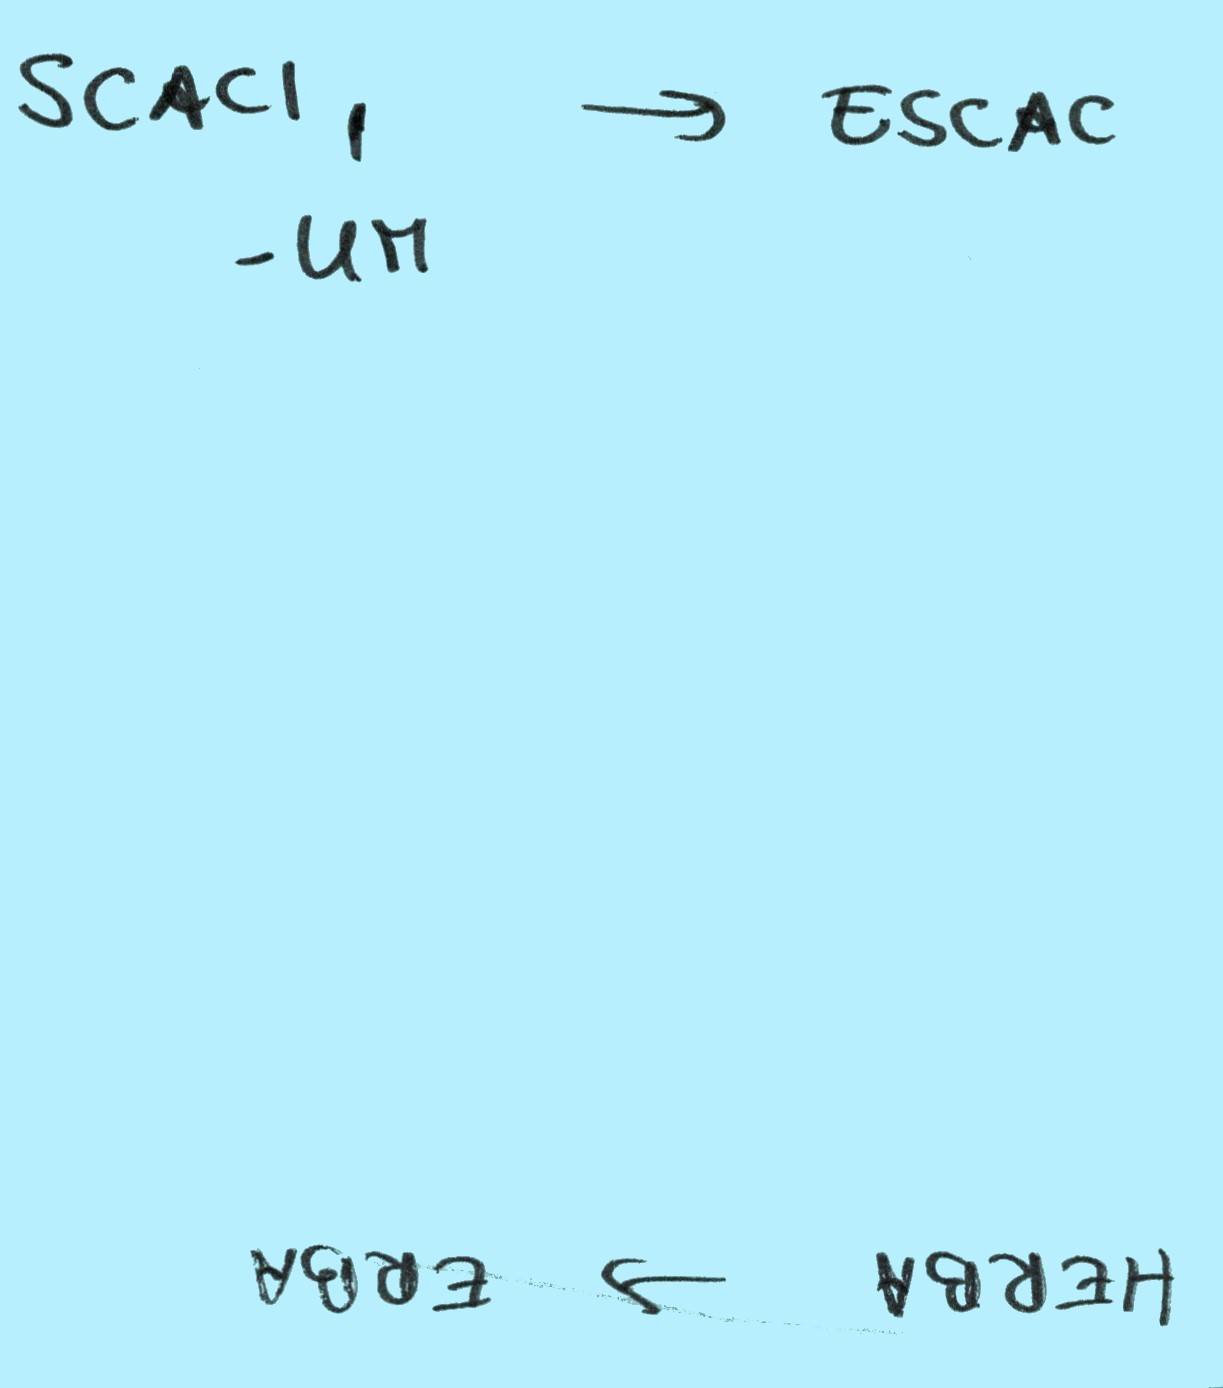 SCACI, → ESCAC
-UM
HERBA → ERBA